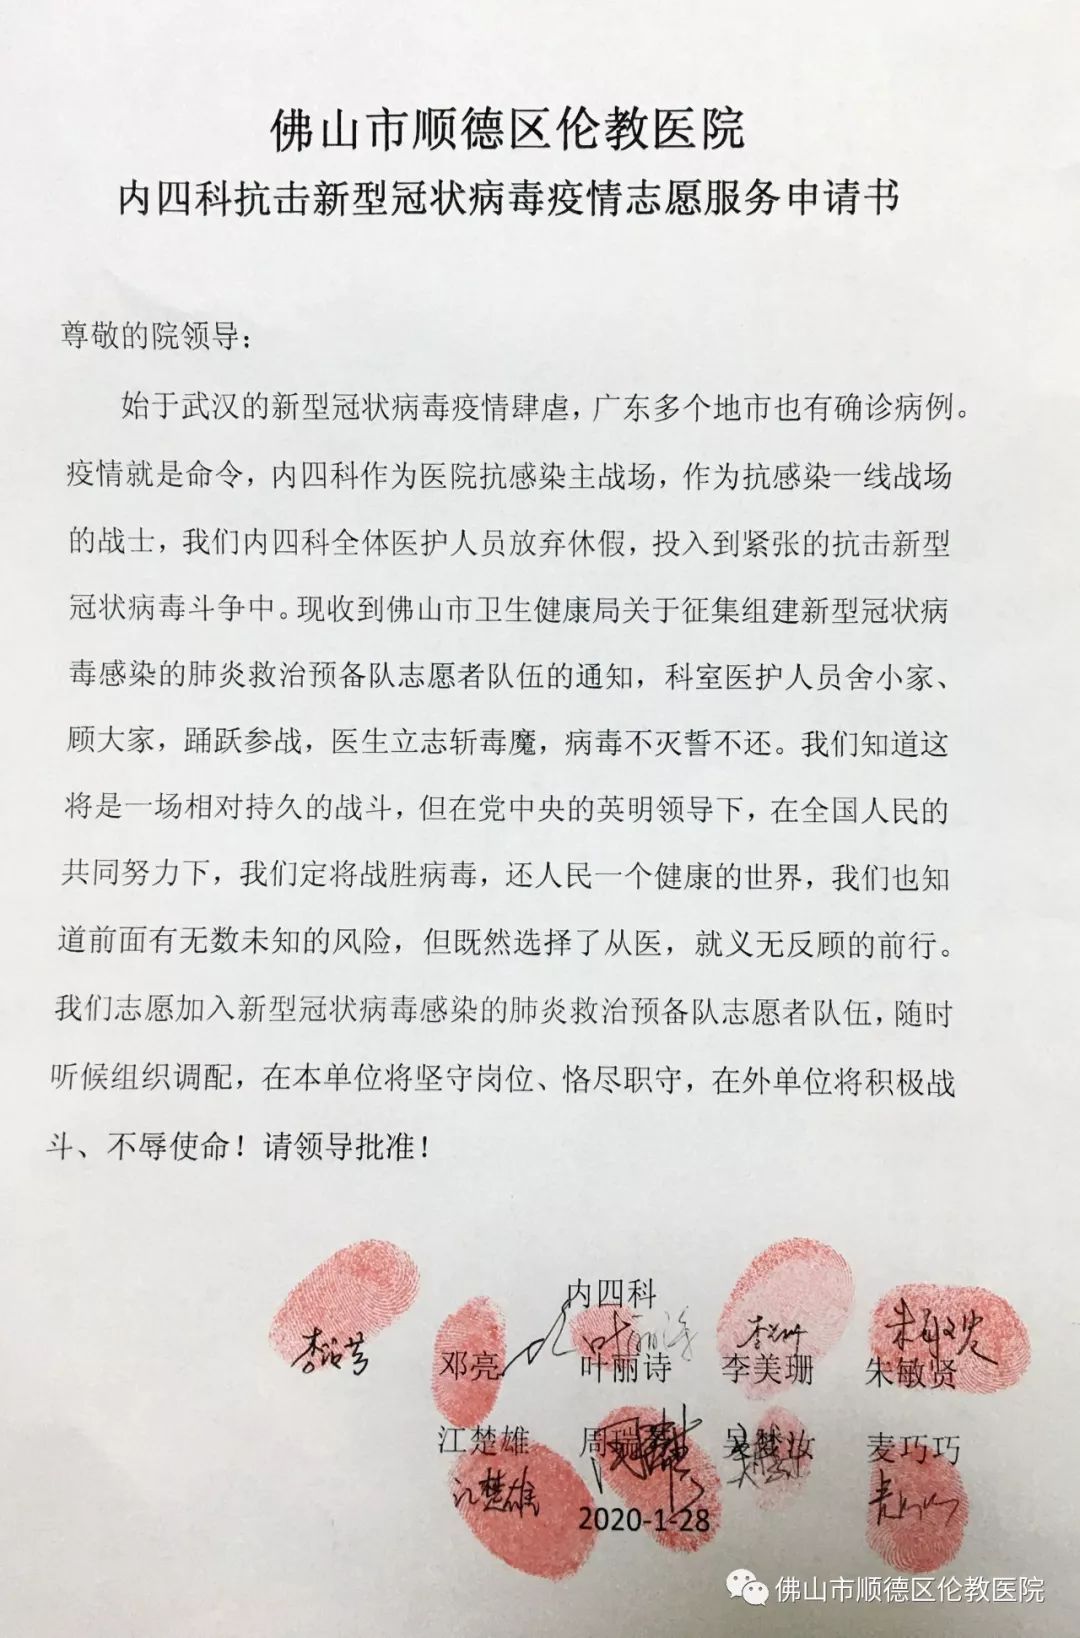 佛山市顺德区伦教医院
内四科抗击新型冠状病毒疫情志愿服务申请书
尊敬的院领导：
始于武汉的新型冠状病毒疫情肆虐，广东多个地市也有确诊病例。
疫情就是命令，内四科作为医院抗感染主战场，作为抗感染一线战场
的战士，我们内四科全体医护人员放弃休假，投入到紧张的抗击新型
冠状病毒斗争中。现收到佛山市卫生健康局关于征集组建新型冠状病
毒感染的肺炎救治预备队志愿者队伍的通知，科室医护人员舍小家、
顾大家，踊跃参战，医生立志斩毒魔，病毒不灭誓不还。我们知道这
将是一场相对持久的战斗，但在党中央的英明领导下，在全国人民的
共同努力下，我们定将战胜病毒，还人民一个健康的世界，我们也知
道前面有无数未知的风险，但既然选择了从医，就义无反顾的前行。
我们志愿加入新型冠状病毒感染的肺炎救治预备队志愿者队伍，随时
听候组织调配，在本单位将坚守岗位、恪尽职守，在外单位将积极战
斗、不辱使命！请领导批准！
内四科
叶丽诗 李美珊 朱敏贤
邓亮 叶丽诗 李美珊 朱敏贤
江楚雄 周瑞 汝 麦巧巧
江楚雄 麦巧巧
2020-1-28
佛山市顺德区伦教医院